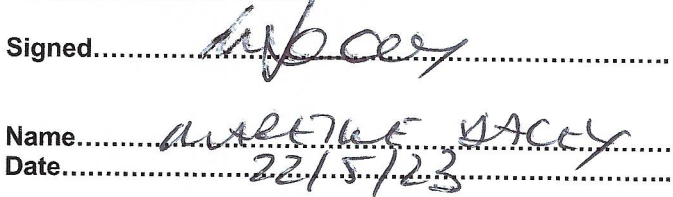 Signed
Name MARTINE DACEY
Date 22/5/23